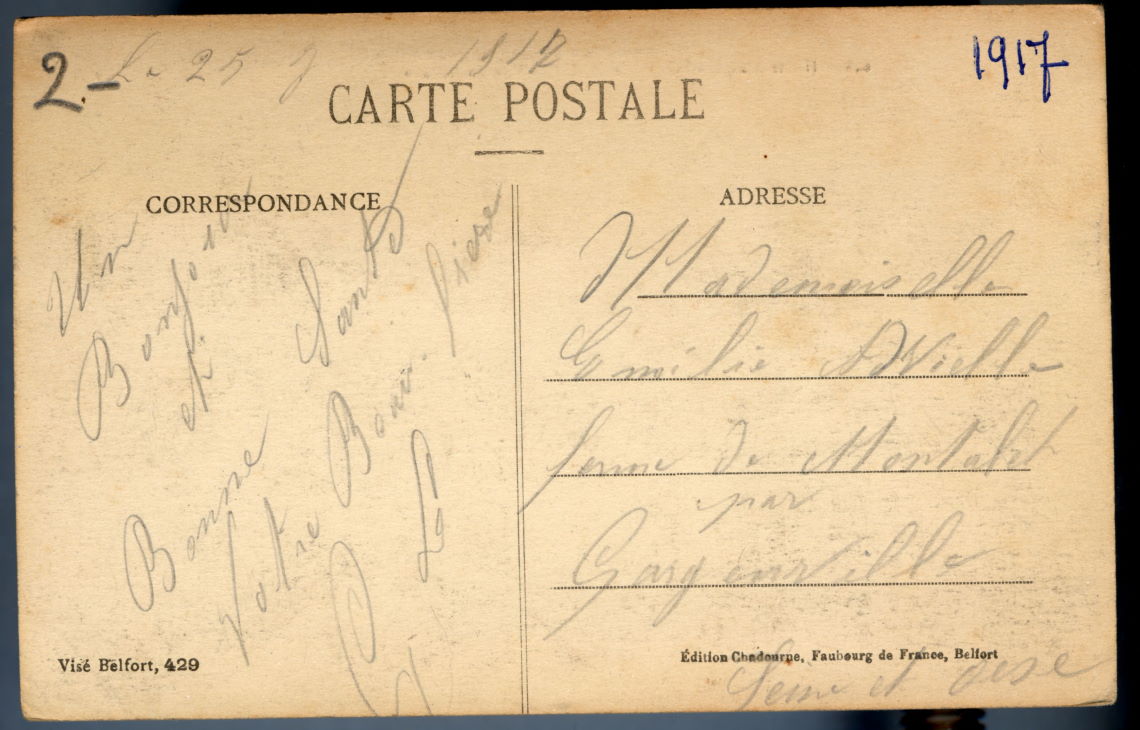 2.- Le 25 1917
1917
CARTE POSTALE
CORRESPONDANCE
Un
Bonjour
et
Bonne Santé
Votre Beau frère
ADRESSE
Mademoiselle
Emilie
ferme de Montalet
par
Gargenville
Seine et Oise
Visé Belfort, 429
Édition Chadourne, Faubourg de France, Belfort